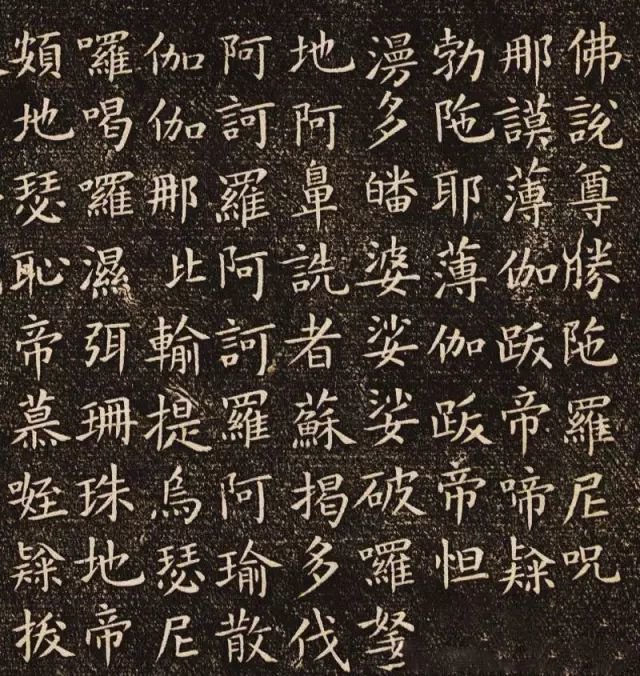 佛說尊勝陁羅尼呪
那謨薄伽跋帝啼隸
勃陁耶薄伽跋帝怛
漫多皤婆娑娑破囉拏
地阿鼻詵者蘇揭多伐
阿訶羅阿訶羅阿瑜散
伽伽那比輸提烏瑟尼
囉喝囉濕弭珊珠地帝
頞地瑟恥帝慕隸拔